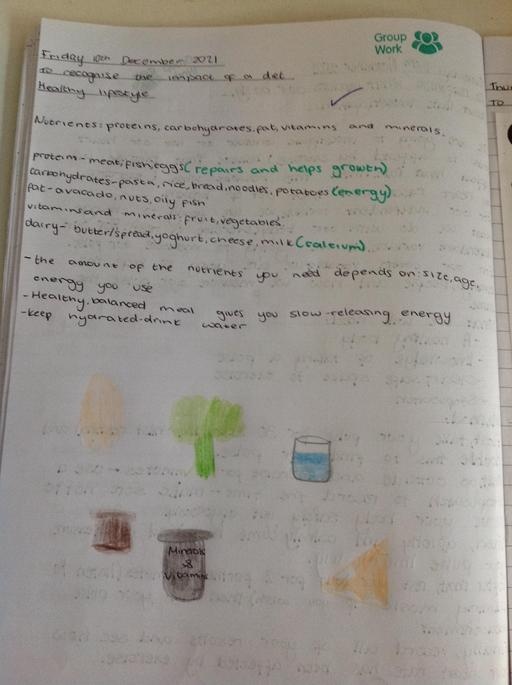 Group
Work
Friday 10th December 2021
To recognise the impact of a diet
Healthy lifestyle
Nutrients: proteins, carbohydrates, fat, vitamins and minerals.
protein-meat, fish, eggs (repairs and helps growth)
carbohydrates-pasta, rice, bread, noodles, potatoes (energy)
fat-avacado, nuts, oily fish
vitamins and minerals-fruit, vegetables
dairy- butter/spread, yoghurt, cheese, milk (calcium)
-the amount of the nutrients you need depends on: size, age,
energy you use
-Healthy, balanced meal gives you slow-releasing energy
-keep hydrated-drink water
&
Vitamins
Thu
TO